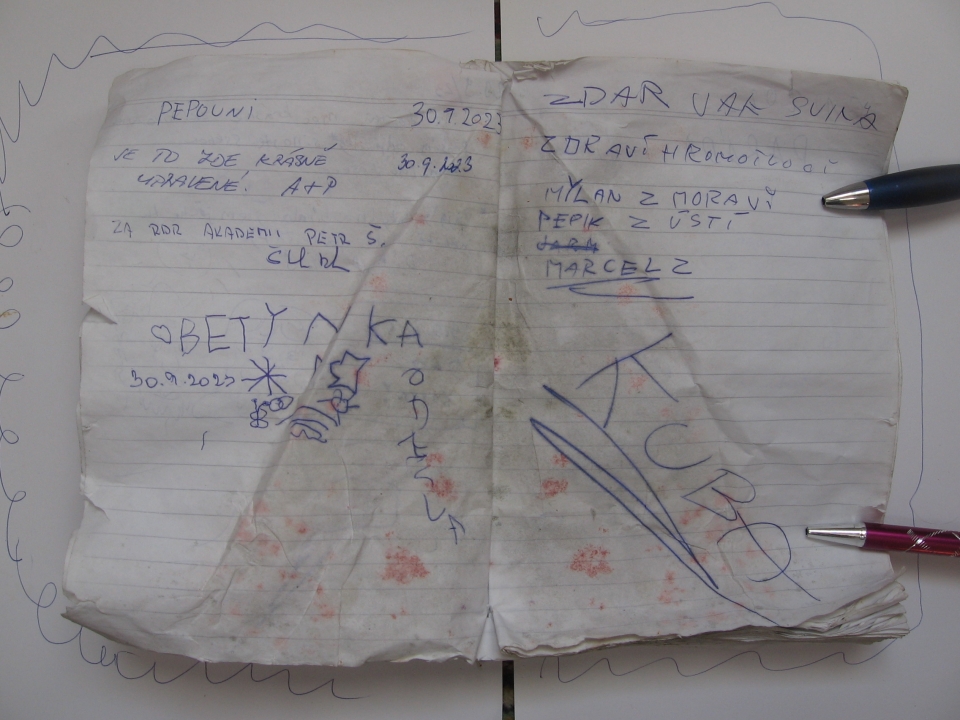 PEPOUNI 30.9.2023
JE TO ZDE KRÁSNĚ 30.9.2023
A+P
ZA RDR AKADEMII PETR Š.
BETYNKA
30.9.2023
ZDAR JAK SVIŇA
ZDRAVÍ HROMOTLUCI
MYLAN Z MORAVÍ
PEPIK Z ÚSTÍ
JARA
MARCEL Z
TURBO